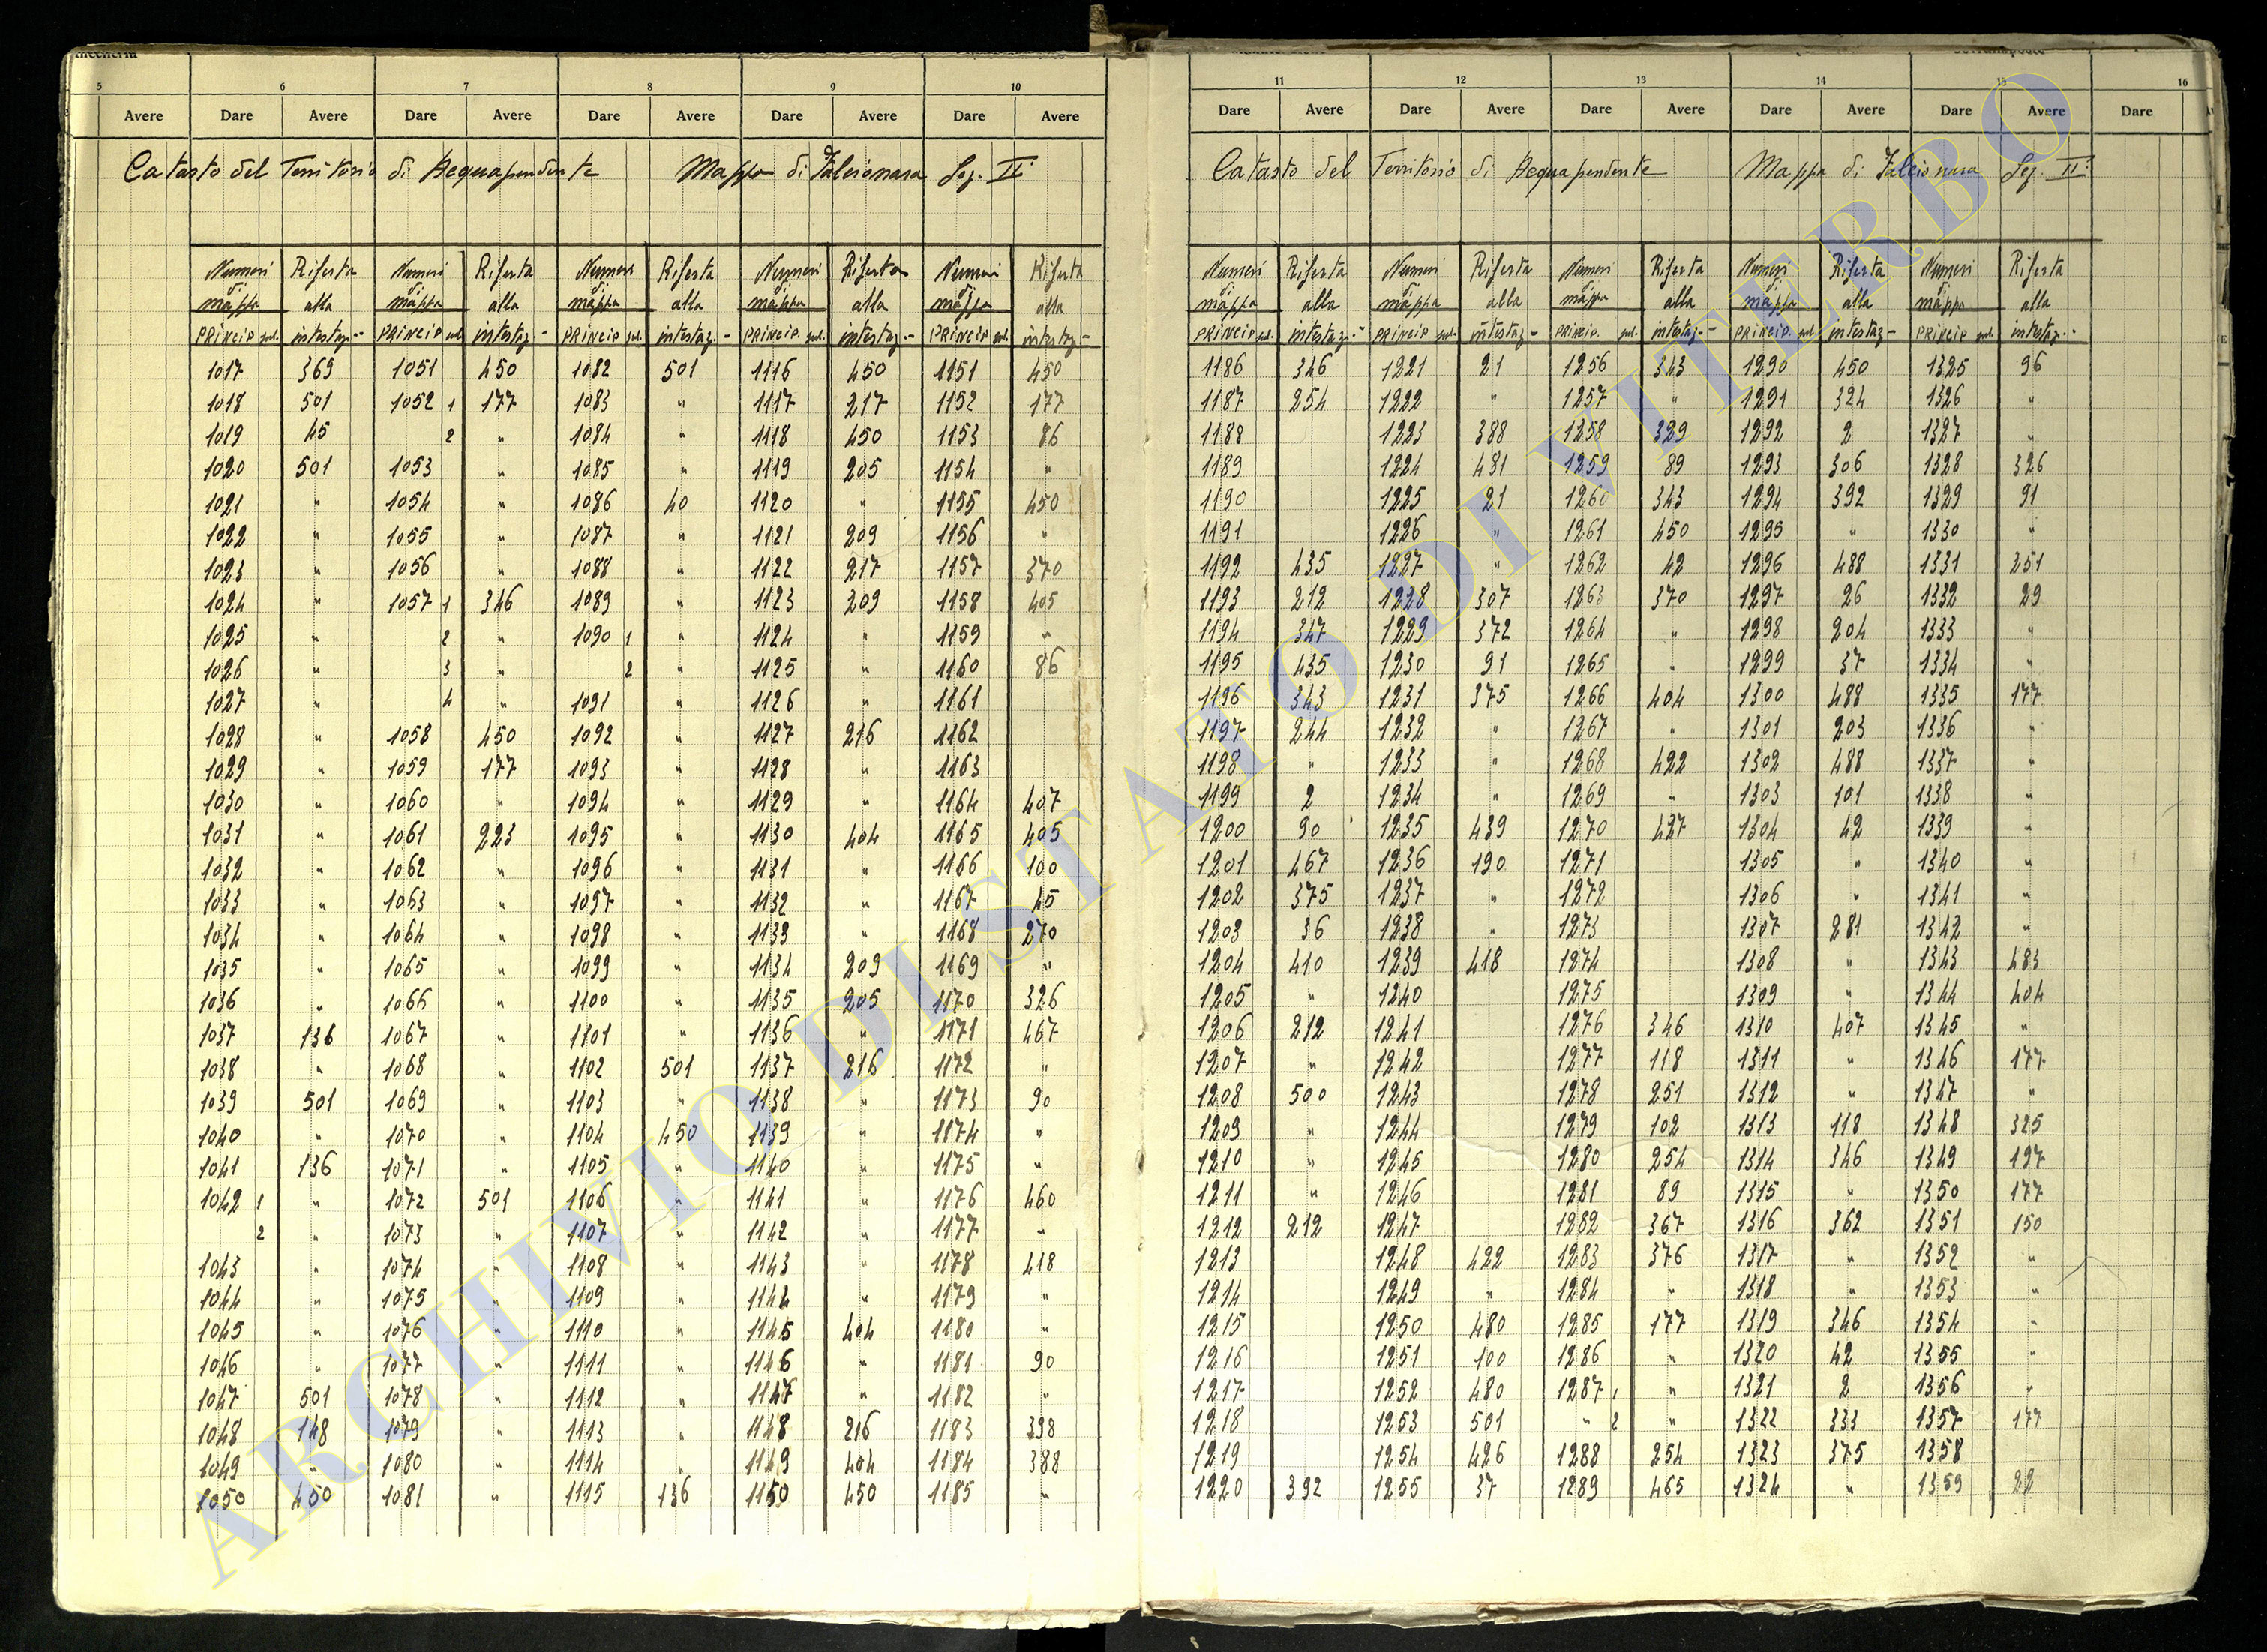 5 6 7 8 9 10
Avere Dare Avere Dare Avere Dare Avere Dare Avere Dare Avere
Catasto del Territorio di Acquapendente Mappa di Falcionara Sez. II
Numeri di mappa Riferta alla Numeri di mappa Riferta alla Numeri di mappa Riferta alla Numeri di mappa Riferta alla Numeri di mappa Riferta alla
Princip. sub. intestaz. Princip. sub. intestaz. Princip. sub. intestaz. Princip. sub. intestaz. Princip. sub. intestaz.
1017 369 1051 450 1082 501 1116 450 1151 450
1018 501 1052 1 177 1083 " 1117 217 1152 177
1019 45 2 " 1084 " 1118 450 1153 86
1020 501 1053 " 1085 " 1119 205 1154 "
1021 " 1054 " 1086 40 1120 " 1155 450
1022 " 1055 " 1087 " 1121 209 1156 "
1023 " 1056 " 1088 " 1122 217 1157 370
1024 " 1057 1 346 1089 " 1123 209 1158 405
1025 " 2 " 1090 1 " 1124 " 1159 "
1026 " 3 " 2 " 1125 " 1160 86
1027 " 4 " 1091 " 1126 " 1161
1028 " 1058 450 1092 " 1127 216 1162
1029 " 1059 177 1093 " 1128 " 1163
1030 " 1060 " 1094 " 1129 " 1164 407
1031 " 1061 223 1095 " 1130 404 1165 405
1032 " 1062 " 1096 " 1131 " 1166 100
1033 " 1063 " 1097 " 1132 " 1167 45
1034 " 1064 " 1098 " 1133 " 1168 270
1035 " 1065 " 1099 " 1134 209 1169 "
1036 " 1066 " 1100 " 1135 205 1170 326
1037 136 1067 " 1101 " 1136 " 1171 467
1038 " 1068 " 1102 501 1137 216 1172 "
1039 501 1069 " 1103 " 1138 " 1173 90
1040 " 1070 " 1104 450 1139 " 1174 "
1041 136 1071 " 1105 " 1140 " 1175 "
1042 1 " 1072 501 1106 " 1141 " 1176 460
2 " 1073 " 1107 " 1142 " 1177 "
1043 " 1074 " 1108 " 1143 " 1178 418
1044 " 1075 " 1109 " 1144 " 1179 "
1045 " 1076 " 1110 " 1145 404 1180 "
1046 " 1077 " 1111 " 1146 " 1181 90
1047 501 1078 " 1112 " 1147 " 1182 "
1048 148 1079 " 1113 " 1148 216 1183 398
1049 " 1080 " 1114 " 1149 404 1184 388
1050 450 1081 " 1115 136 1150 450 1185 "
11 12 13 14 15 16
Dare Avere Dare Avere Dare Avere Dare Avere Dare Avere Dare
Catasto del Territorio di Acquapendente Mappa di Falcionara Sez. II
Numeri di mappa Riferta alla Numeri di mappa Riferta alla Numeri di mappa Riferta alla Numeri di mappa Riferta alla Numeri di mappa Riferta alla
Princip. sub. intestaz. Princip. sub. intestaz. Princip. sub. intestaz. Princip. sub. intestaz. Princip. sub. intestaz.
1186 346 1221 21 1256 343 1290 450 1325 96
1187 254 1222 " 1257 " 1291 324 1326 "
1188 1223 388 1258 329 1292 2 1327 "
1189 1224 481 1259 89 1293 306 1328 326
1190 1225 21 1260 343 1294 392 1329 91
1191 1226 " 1261 450 1295 " 1330 "
1192 435 1227 " 1262 42 1296 488 1331 251
1193 212 1228 307 1263 370 1297 26 1332 29
1194 347 1229 372 1264 " 1298 204 1333 "
1195 435 1230 91 1265 " 1299 37 1334 "
1196 343 1231 375 1266 404 1300 488 1335 177
1197 244 1232 " 1267 " 1301 203 1336 "
1198 " 1233 " 1268 422 1302 488 1337 "
1199 2 1234 " 1269 " 1303 101 1338 "
1200 90 1235 439 1270 427 1304 42 1339 "
1201 467 1236 190 1271 1305 " 1340 "
1202 375 1237 " 1272 1306 " 1341 "
1203 36 1238 " 1273 1307 281 1342 "
1204 410 1239 418 1274 1308 " 1343 483
1205 " 1240 1275 1309 " 1344 404
1206 212 1241 1276 346 1310 407 1345 "
1207 " 1242 1277 118 1311 " 1346 177
1208 500 1243 1278 251 1312 " 1347 "
1209 " 1244 1279 102 1313 118 1348 325
1210 " 1245 1280 254 1314 346 1349 197
1211 " 1246 1281 89 1315 " 1350 177
1212 212 1247 1282 367 1316 362 1351 150
1213 1248 422 1283 376 1317 " 1352 "
1214 1249 " 1284 " 1318 " 1353 "
1215 1250 480 1285 177 1319 346 1354 "
1216 1251 100 1286 " 1320 42 1355 "
1217 1252 480 1287 1 " 1321 2 1356 "
1218 1253 501 " 2 " 1322 333 1357 177
1219 1254 426 1288 254 1323 375 1358
1220 392 1255 37 1289 465 1324 " 1359 22
ARCHIVIO DI STATO DI VITERBO